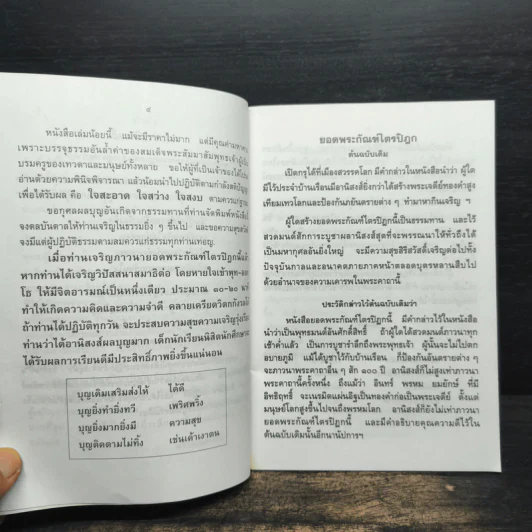 ๔
หนังสือเล่มน้อยนี้ แม้จะมีราคาไม่มาก แต่มีคุณค่ามหาศาล
เพราะบรรจุธรรมอันล้ำค่าของสมเด็จพระสัมมาสัมพุทธเจ้าผู้เป็น
บรมครูของเทวดาและมนุษย์ทั้งหลาย ขอให้ผู้ที่เป็นเจ้าของได้โปรด
อ่านด้วยความพินิจพิจารณา แล้วน้อมนำไปปฏิบัติตามกำลังสติปัญญา
เพื่อได้รับผล คือ ใจสะอาด ใจสว่าง ใจสงบ ตามควรแก่ฐานะ
ขอกุศลผลบุญอันเกิดจากธรรมทานที่ท่านจัดพิมพ์หนังสือนี้
จงดลบันดาลให้ท่านเจริญในธรรมยิ่ง ๆ ขึ้นไป และขอความสุขสวัสดิ์
จงมีแด่ผู้ปฏิบัติธรรมตามสมควรแก่ธรรมทุกท่านเทอญ.
เมื่อท่านเจริญภาวนายอดพระกัณฑ์ไตรปิฎกนี้แล้ว
หากท่านได้เจริญวิปัสสนาสมาธิต่อ โดยหายใจเข้าพุท-ออก
โธ ให้มีจิตอารมณ์เป็นหนึ่งเดียว ประมาณ ๑๐-๒๐ นาที
ทำให้เกิดความคิดและความจำดี คลายเครียดวิตกกังวล
ถ้าท่านได้ปฏิบัติทุกวัน จะประสบความสุขความเจริญรุ่งเรือง
ท่านว่าได้อานิสงส์ผลบุญมาก เด็กนักเรียนนิสิตนักศึกษา
ได้รับผลการเรียนดีมีประสิทธิ์ภาพยิ่งขึ้นแน่นอน
บุญเดิมเสริมส่งให้ ได้ดี
บุญยิ่งทำยิ่งทวี เพริศพริ้ง
บุญยิ่งมากยิ่งมี ความสุข
บุญติดตามไม่ทิ้ง เช่นเค้าเงาตน
ยอดพระกัณฑ์ไตรปิฎก
ต้นฉบับเดิม
เปิดกรุได้ที่เมืองสวรรคโลก มีคำกล่าวในหนังสือนำว่า ผู้ใด
มีไว้ประจำบ้านเรือนมีอานิสงส์ยิ่งกว่าได้สร้างพระเจดีย์ทองคำสูง
เทียมเทวโลกและป้องกันภยันตรายต่าง ๆ ทำมาหากินเจริญ ฯ
ผู้ใดสร้างยอดพระกัณฑ์ไตรปิฎกนี้เป็นธรรมทาน และไว้
สวดมนต์สักการะบูชาผลานิสงส์สุดที่จะพรรณนาให้ทั่วถึงได้
เป็นมหากุศลอันยิ่งใหญ่ จะมีความสุขสิริสวัสดิ์เจริญต่อไปทั้ง
ปัจจุบันกาลและอนาคตภายภาคหน้าตลอดบุตรหลานสืบไป
ด้วยอำนาจของความเคารพในพระคาถานี้
ประวัติกล่าวไว้ต้นฉบับเดิมว่า
หนังสือยอดพระกัณฑ์ไตรปิฎกนี้ มีคำกล่าวไว้ในหนังสือ
นำว่าเป็นพุทธมนต์อันศักดิ์สิทธิ์ ถ้าผู้ใดได้สวดมนต์ภาวนาทุก
เช้าค่ำแล้ว เป็นการบูชารำลึกถึงพระพุทธเจ้า ผู้นั้นจะไม่ไปตก
อบายภูมิ แม้ได้บูชาไว้กับบ้านเรือน ก็ป้องกันอันตรายต่าง ๆ
จะภาวนาพระคาถาอื่น ๆ สัก ๑๐๐ ปี อานิสงส์ก็ไม่สูงเท่าภาวนา
พระคาถานี้ครั้งหนึ่ง ถึงแม้ว่า อินทร์ พรหม ยมยักษ์ ที่มี
อิทธิฤทธิ์ จะเนรมิตแผ่นอิฐเป็นทองคำก่อเป็นพระเจดีย์ ตั้งแต่
มนุษย์โลกสูงขึ้นไปจนถึงพรหมโลก อานิสงส์ก็ยังไม่เท่าภาวนา
ยอดพระกัณฑ์ไตรปิฎกนี้ และมีคำอธิบายคุณความดีไว้ใน
ต้นฉบับเดิมนั้นอีกนานัปการฯ